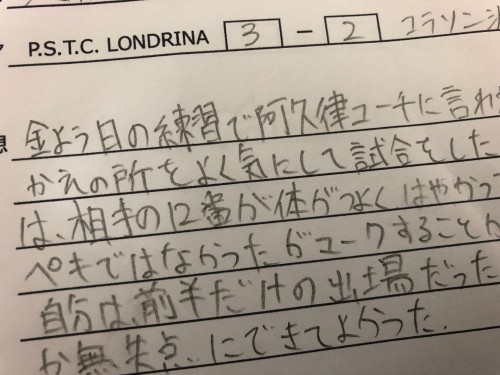 P.S.T.C. LONDRINA 3 - 2 コラソン
想
金よう日の練習で阿久津コーチに言わ
かえの所をよく気にして試合をした
は、相手の12番が体がつよくはやかっ
ペキではなかったがコークすることが
自分は、前半だけの出場だった
が無失点にできてよかった.